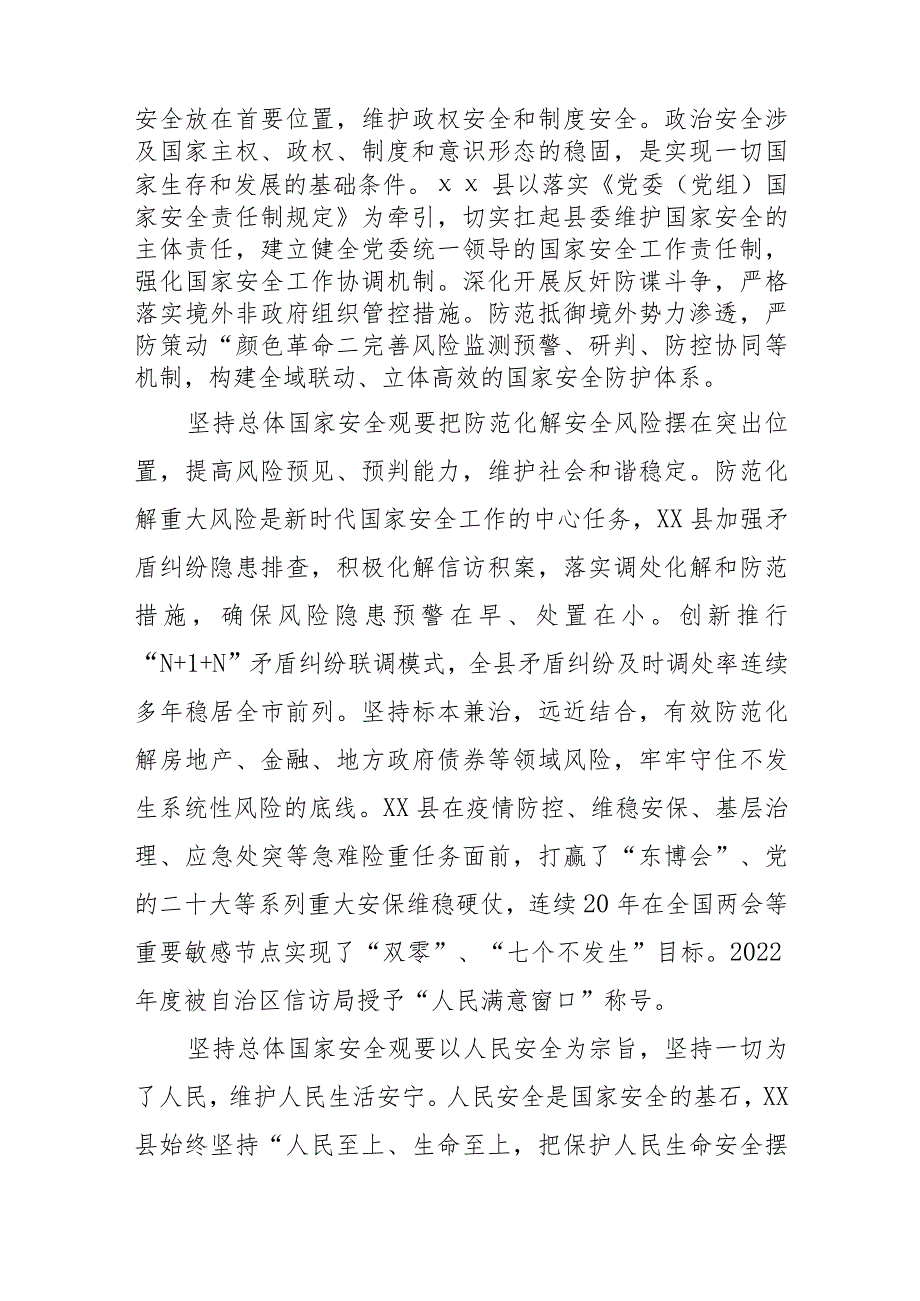 安全放在首要位置，维护政权安全和制度安全。政治安全涉
及国家主权、政权、制度和意识形态的稳固，是实现一切国
家生存和发展的基础条件。ｘｘ县以落实《党委（党组）国
家安全责任制规定》为牵引，切实扛起县委维护国家安全的
主体责任，建立健全党委统一领导的国家安全工作责任制，
强化国家安全工作协调机制。深化开展反奸防谍斗争，严格
落实境外非政府组织管控措施。防范抵御境外势力渗透，严
防策动“颜色革命二完善风险监测预警、研判、防控协同等
机制，构建全域联动、立体高效的国家安全防护体系。
坚持总体国家安全观要把防范化解安全风险摆在突出位
置，提高风险预见、预判能力，维护社会和谐稳定。防范化
解重大风险是新时代国家安全工作的中心任务，XX县加强矛
盾纠纷隐患排查，积极化解信访积案，落实调处化解和防范
措施，确保风险隐患预警在早、处置在小。创新推行
“N+1+N”矛盾纠纷联调模式，全县矛盾纠纷及时调处率连续
多年稳居全市前列。坚持标本兼治，远近结合，有效防范化
解房地产、金融、地方政府债券等领域风险，牢牢守住不发
生系统性风险的底线。XX县在疫情防控、维稳安保、基层治
理、应急处突等急难险重任务面前，打赢了“东博会”、党
的二十大等系列重大安保维稳硬仗，连续20年在全国两会等
重要敏感节点实现了“双零”、“七个不发生”目标。2022
年度被自治区信访局授予“人民满意窗口”称号。
坚持总体国家安全观要以人民安全为宗旨，坚持一切为
了人民，维护人民生活安宁。人民安全是国家安全的基石，XX
县始终坚持“人民至上、生命至上，把保护人民生命安全摆